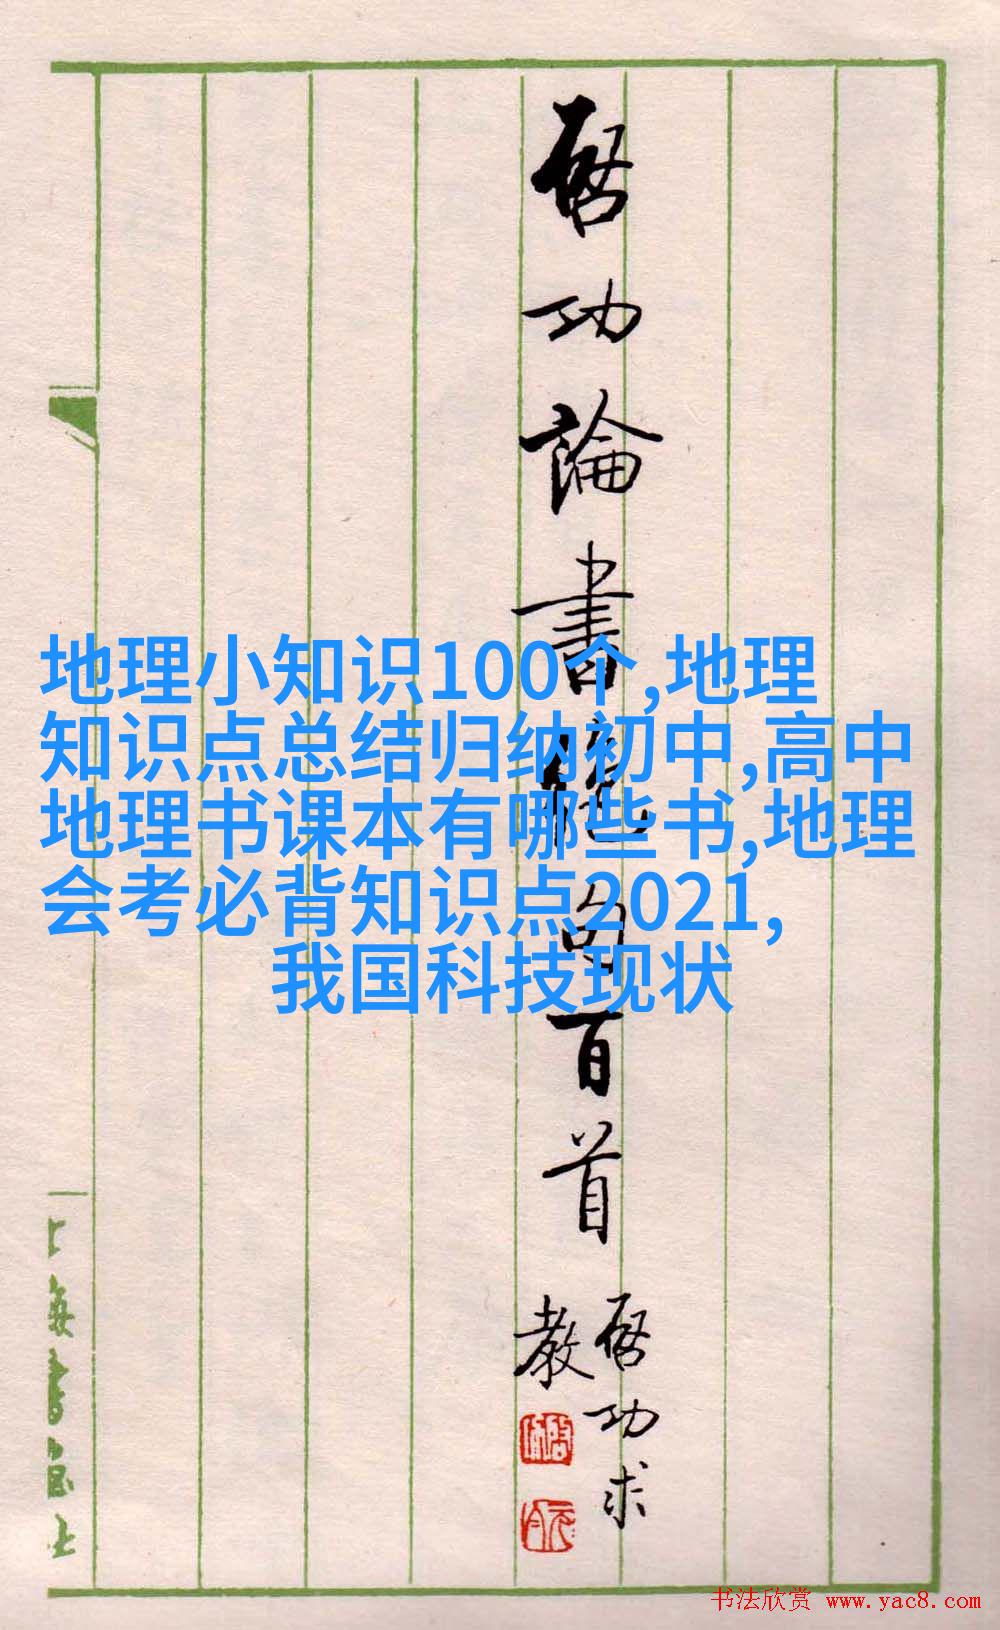 啓功論書絕句百首
啓功求
教
地理小知识100个,地理
知识点总结归纳初中,高中
地理书课本有哪些书,地理
会考必背知识点2021,
我国科技现状
上海書畫社
书法欣赏 www.yac8.com